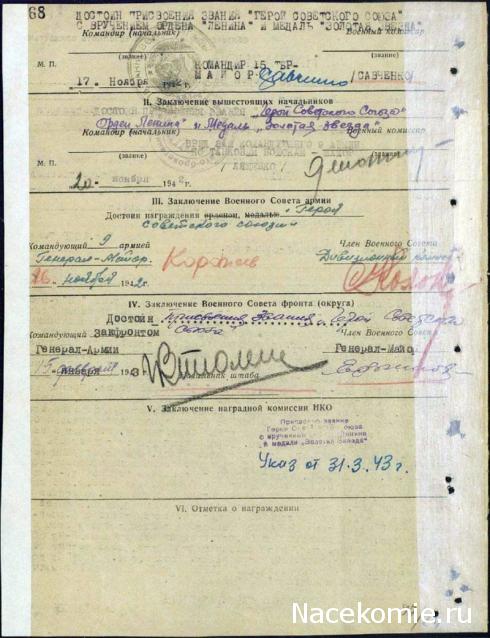 68
ДОСТОИН ПРИСВОЕНИЯ ЗВАНИЯ "ГЕРОЙ СОВЕТСКОГО СОЮЗА"
С ВРУЧЕНИЕМ ОРДЕНА "ЛЕНИНА" И МЕДАЛЬ "ЗОЛОТАЯ ЗВЕЗДА"
Командир (начальник)
Военный комиссар
(звание)
(звание)
КОМАНДИР 15 ТБР-
М. П.
МАЙОР Савченко /САВЧЕНКО/
17. Ноября 1942 г.
II. Заключение вышестоящих начальников
"Герой Советского Союза"
Орден Ленина" и Медаль "Золотая звезда"
Командир (начальник)
Военный комиссар
(звание)
(звание)
М. П.
20 ноября 1942
III. Заключение Военного Совета армии
Достоин награждения орденом, медалью "Героя
Советского союза"
Командующий 9 армией
Член Военного Совета
Генерал-Майор
16 ноября 1942 г.
IV. Заключение Военного Совета фронта (округа)
Достоин присвоения звания "Герой Советского
Союза"
Командующий Закфронтом
Член Военного Совета
Генерал-Армии
Генерал-Майор
января 1943
Начальник штаба
V. Заключение наградной комиссии НКО
Присвоено звание
Героя Советского Союза
с вручением ордена Ленина
и медали "Золотая Звезда"
Указ от 31.3.43 г.
VI. Отметка о награждении
Nacekomie.ru